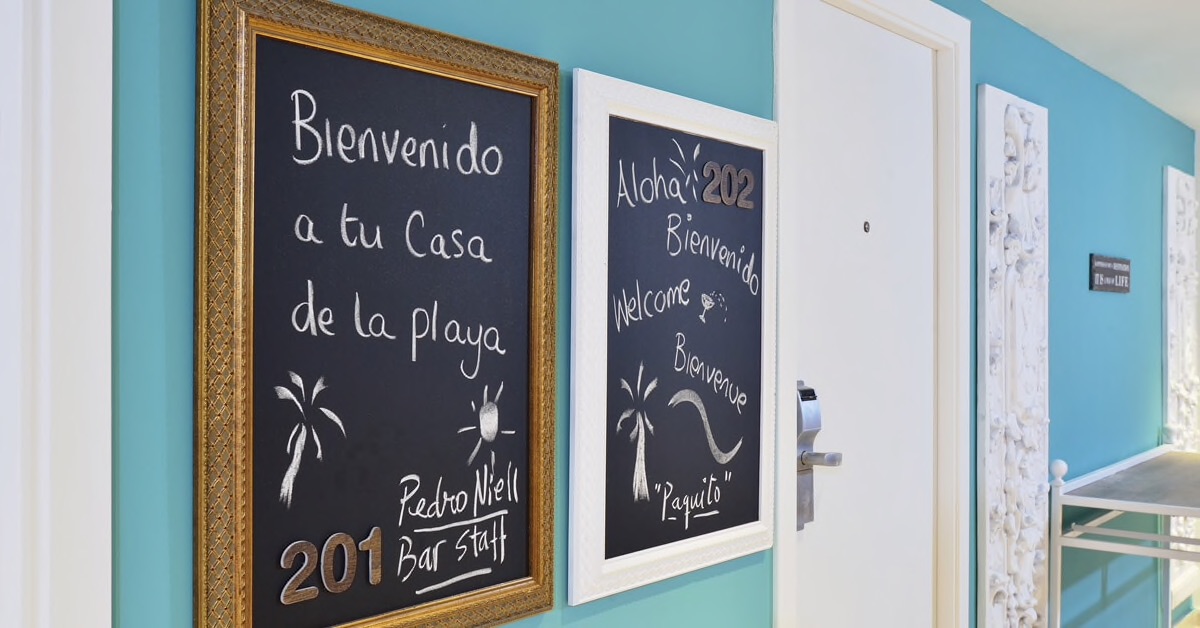 Bienvenido
a tu Casa
de la playa
Pedro Niell
Bar Staff
201
Aloha
202
Bienvenido
Welcome
Bienvenue
"Paquito"
IT IS
LIFE